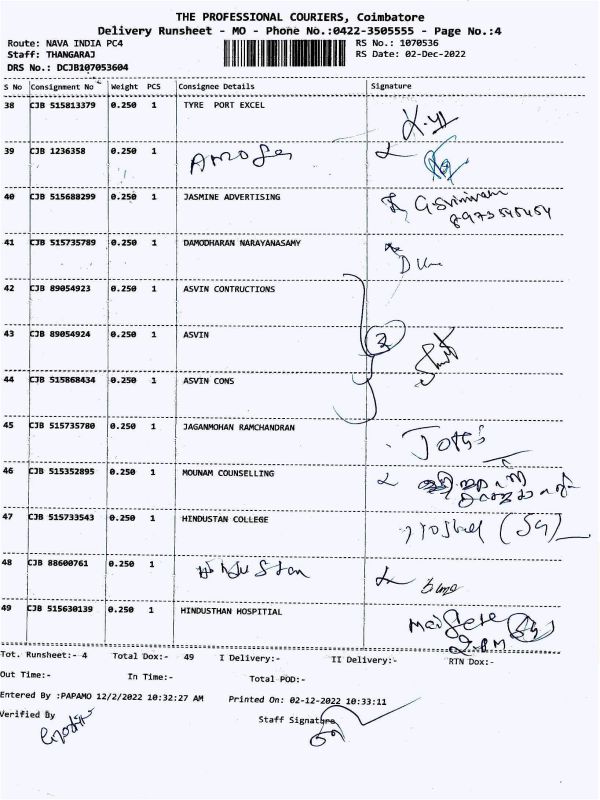 THE PROFESSIONAL COURIERS, Coimbatore
Delivery Runsheet - MO - Phone No.:0422-3505555 - Page No.:4
Route: NAVA INDIA PC4 RS No.: 1070536
Staff: THANGARAJ RS Date: 02-Dec-2022
DRS No.: DCJB107053604
S No Consignment No Weight PCS Consignee Details Signature
38 CJB 515813379 0.250 1 TYRE PORT EXCEL
39 CJB 1236358 0.250 1
40 CJB 515688299 0.250 1 JASMINE ADVERTISING
41 CJB 515735789 0.250 1 DAMODHARAN NARAYANASAMY
42 CJB 89054923 0.250 1 ASVIN CONTRUCTIONS
43 CJB 89054924 0.250 1 ASVIN 3
44 CJB 515868434 0.250 1 ASVIN CONS
45 CJB 515735780 0.250 1 JAGANMOHAN RAMCHANDRAN
46 CJB 515352895 0.250 1 MOUNAM COUNSELLING
47 CJB 515733543 0.250 1 HINDUSTAN COLLEGE
48 CJB 88600761 0.250 1 Hindustan
49 CJB 515630139 0.250 1 HINDUSTHAN HOSPITIAL
Tot. Runsheet:- 4 Total Dox:- 49 I Delivery:- II Delivery:- RTN Dox:-
Out Time:- In Time:- Total POD:-
Entered By :PAPAMO 12/2/2022 10:32:27 AM Printed On: 02-12-2022 10:33:11
Verified By Staff Signature